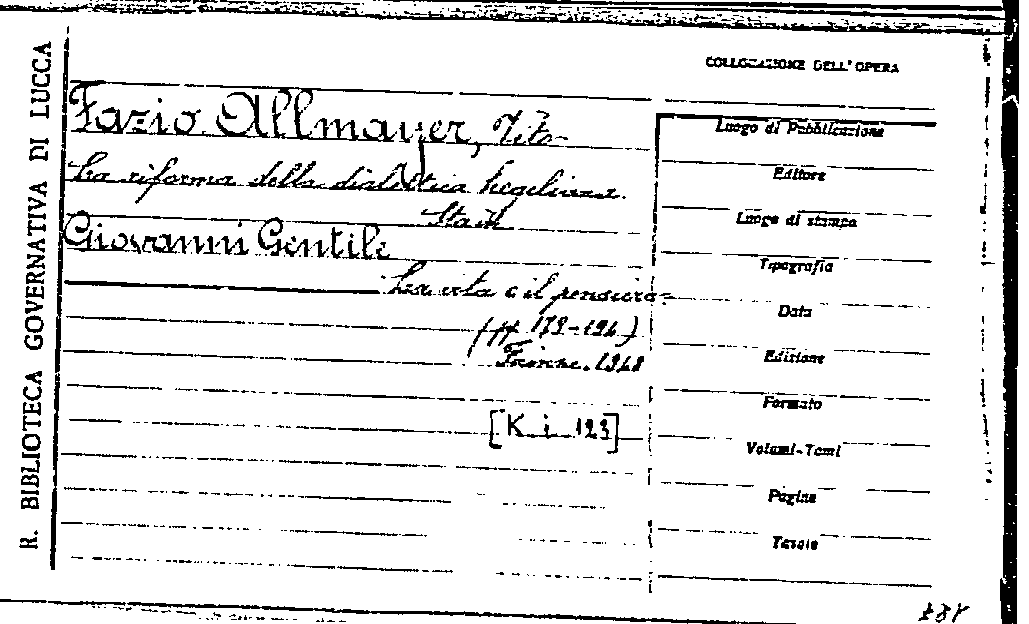 R. BIBLIOTECA GOVERNATIVA DI LUCCA
COLLOCAZIONE DELL'OPERA
Fazio Allmayer, Vito
La riforma della dialettica hegeliana.
Giovanni Gentile
La vita e il pensiero=
(pp 179-194)
Firenze. 1948
[K. i. 123]
Luogo di Pubblicazione
Editore
Luogo di stampa
Tipografia
Data
Edizione
Formato
Volumi-Tomi
Pagine
Tavole